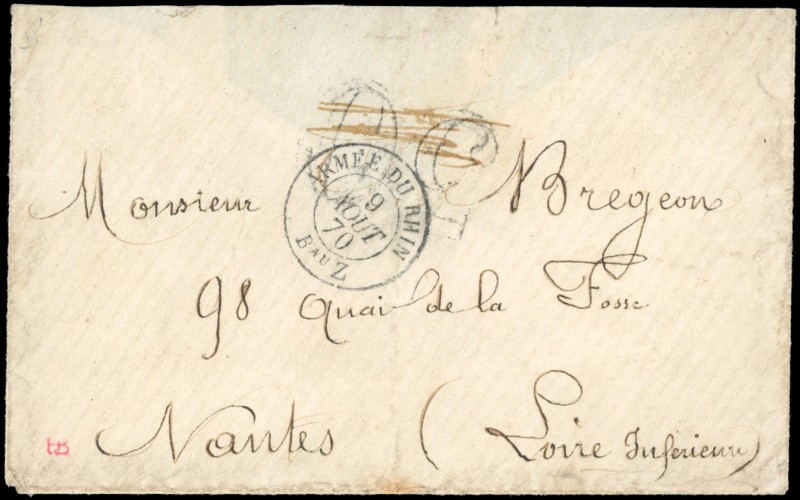 ARMÉE DU RHIN
9
AOUT
70
BAU Z
Monsieur Brégeon
98 Quai de la Fosse
Nantes (Loire Inférieure)